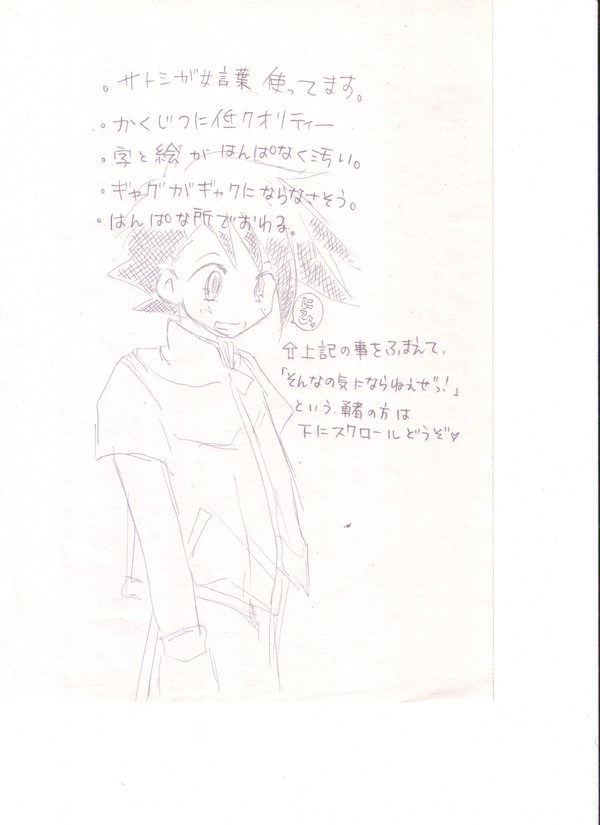 。サトシが女言葉 使ってます。
。かくじつに低クオリティー
。字と絵がはんぱなく汚い。
。ギャグがギャグにならなさそう。
。はんぱな所でおわる。
⇧上記の事をふまえて、
「そんなの気にならねえぜっ!」
という勇者の方は
下にスクロールどうぞ♡